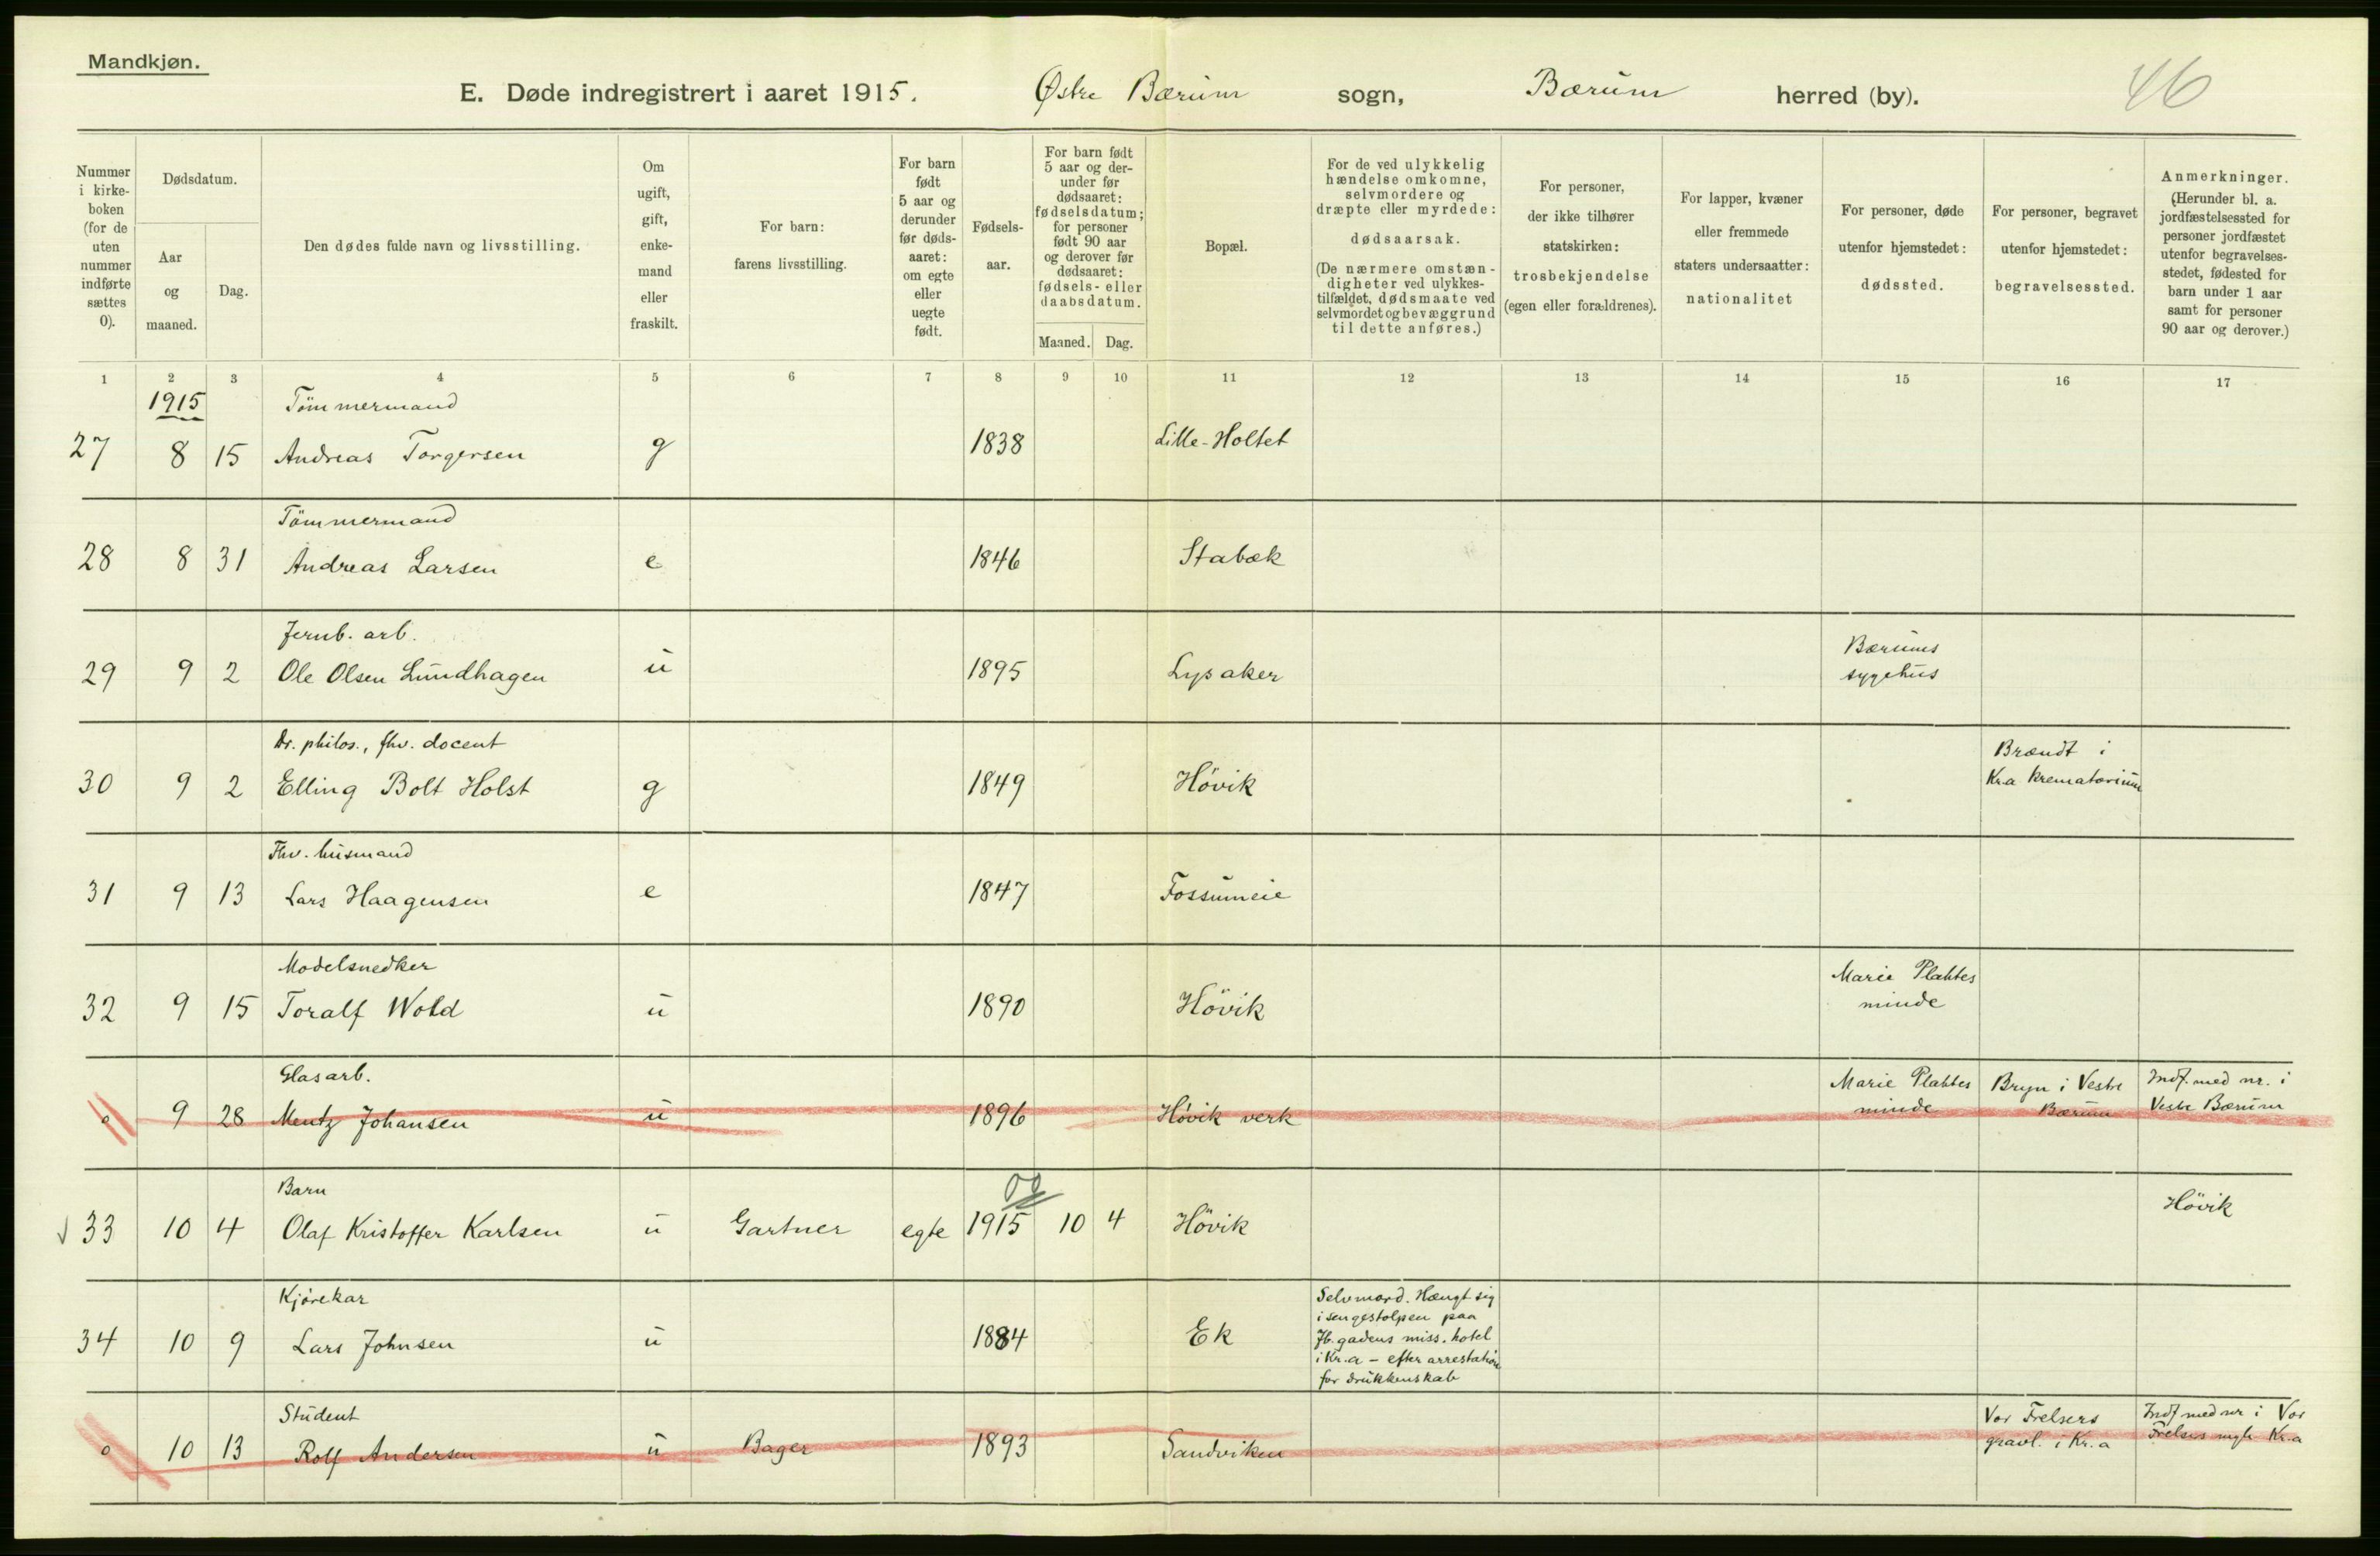 Mandkjøn.
E. Døde indregistrert i aaret 1915. Østre Bærum sogn, Bærum herred (by). 46
Nummer
i kirke-
boken
(for de
uten
nummer
indførte
sættes
0).
Dødsdatum.
Aar
og
maaned.
Dag.
Den dødes fulde navn og livsstilling.
Om
ugift,
gift,
enke-
mand
eller
fraskilt.
For barn:
farens livsstilling.
For barn
født
5 aar og
derunder
før døds-
aaret:
om egte
eller
uegte
født.
Fødsels-
aar.
For barn født
5 aar og der-
under før
dødsaaret:
fødselsdatum;
for personer
født 90 aar
og derover før
dødsaaret:
fødsels- eller
daabsdatum.
Maaned.
Dag.
Bopæl.
For de ved ulykkelig
hændelse omkomne,
selvmordere og
dræpte eller myrdede:
dødsaarsak.
(De nærmere omstæn-
digheter ved ulykkes-
tilfældet, dødsmaate ved
selvmordet og bevæggrund
til dette anføres.)
For personer,
der ikke tilhører
statskirken:
trosbekjendelse
(egen eller forældrenes).
For lapper, kvæner
eller fremmede
staters undersaatter:
nationalitet
For personer, døde
utenfor hjemstedet:
dødssted.
For personer, begravet
utenfor hjemstedet:
begravelsessted.
Anmerkninger.
(Herunder bl. a.
jordfæstelsessted for
personer jordfæstet
utenfor begravelses-
stedet, fødested for
barn under 1 aar
samt for personer
90 aar og derover.)
1 2 3 4 5 6 7 8 9 10 11 12 13 14 15 16 17
1915 Tömmermand
27 8 15 Andreas Torgersen g 1838 Lille-Holtet
Tömmermand
28 8 31 Andreas Larsen e 1846 Stabæk
Jernb. arb.
29 9 2 Ole Olsen Lundhagen u 1895 Lysaker Bærums
sygehus
Dr. philos., fhv. docent
30 9 2 Elling Bolt Holst g 1849 Hövik Brændt i
Kr.a krematorium
Fhv. husmand
31 9 13 Lars Haagensen e 1847 Fossumeie
Modelsnedker
32 9 15 Toralf Wold u 1890 Hövik Marie Plahtes
minde
Glasarb.
o 9 28 Mentz Johansen u 1896 Hövik verk Marie Plahtes
minde
Bryn i Vestre
Bærum
Indf. med nr. i
Vestre Bærum
Barn
33 10 4 Olaf Kristoffer Karlsen u Gartner egte 1915 10 4 Hövik Hövik
Kjörekar
34 10 9 Lars Johnsen u 1884 Ek
Selvmord. Hængt sig
i sengestolpen paa
Jb. gadens miss. hotel
i Kr.a - efter arrestation
for drukkenskab
Student
o 10 13 Rolf Andersen u Bager 1893 Sandviken
Vor Frelsers
gravl. i Kr.a
Indf med nr i Vor
Frelsers mgh Kr.a